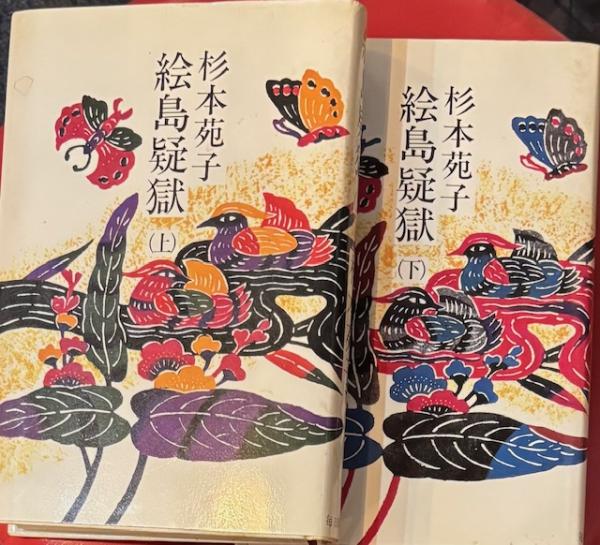 杉本苑子
絵島疑獄
(上)
毎
杉本苑子
絵島疑獄
(下)